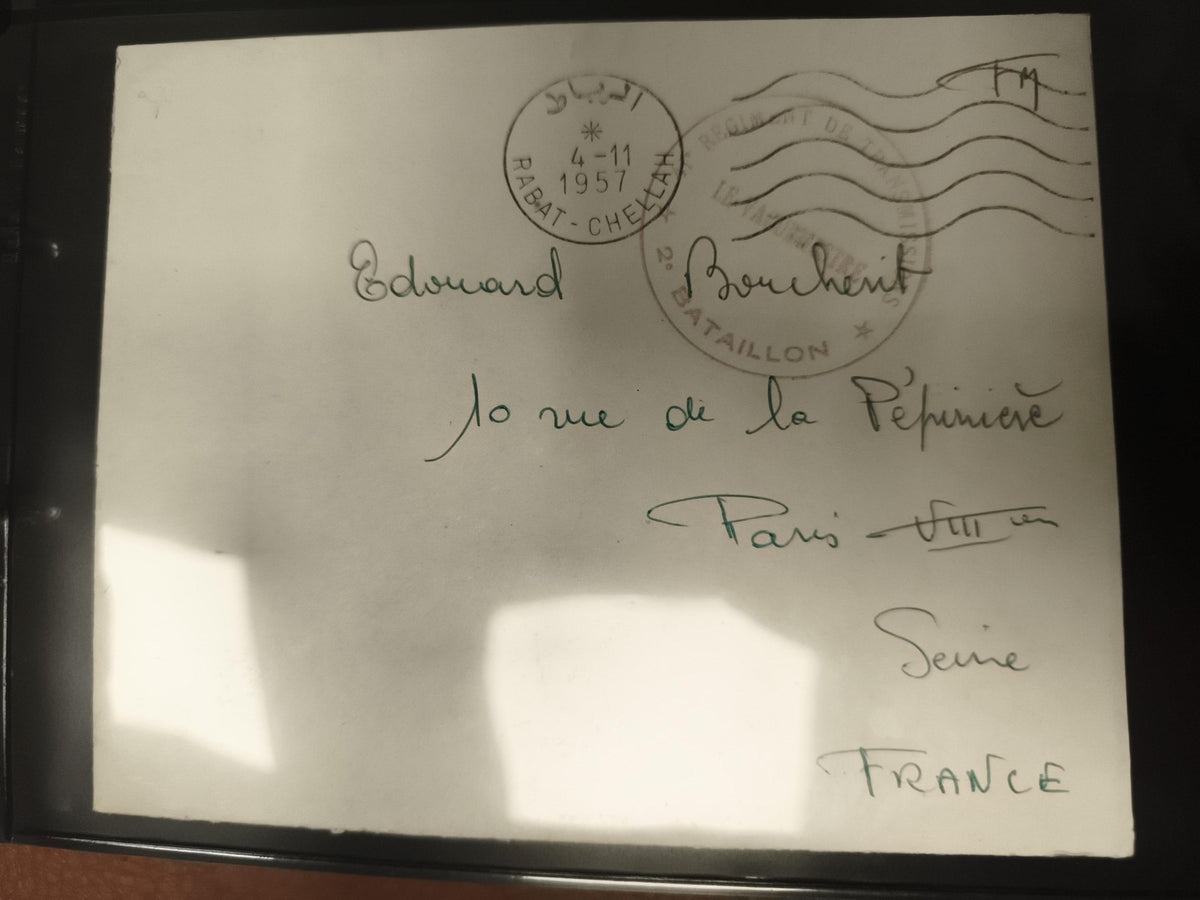 FM
الرباط
4-11
1957
RABAT-CHELLAH
REGIMENT DE TRANSMISSIONS
LE VAGUEMESTRE
2° BATAILLON
Edouard Boucherit
10 rue de la Pépinière
Paris - VIII em
Seine
FRANCE